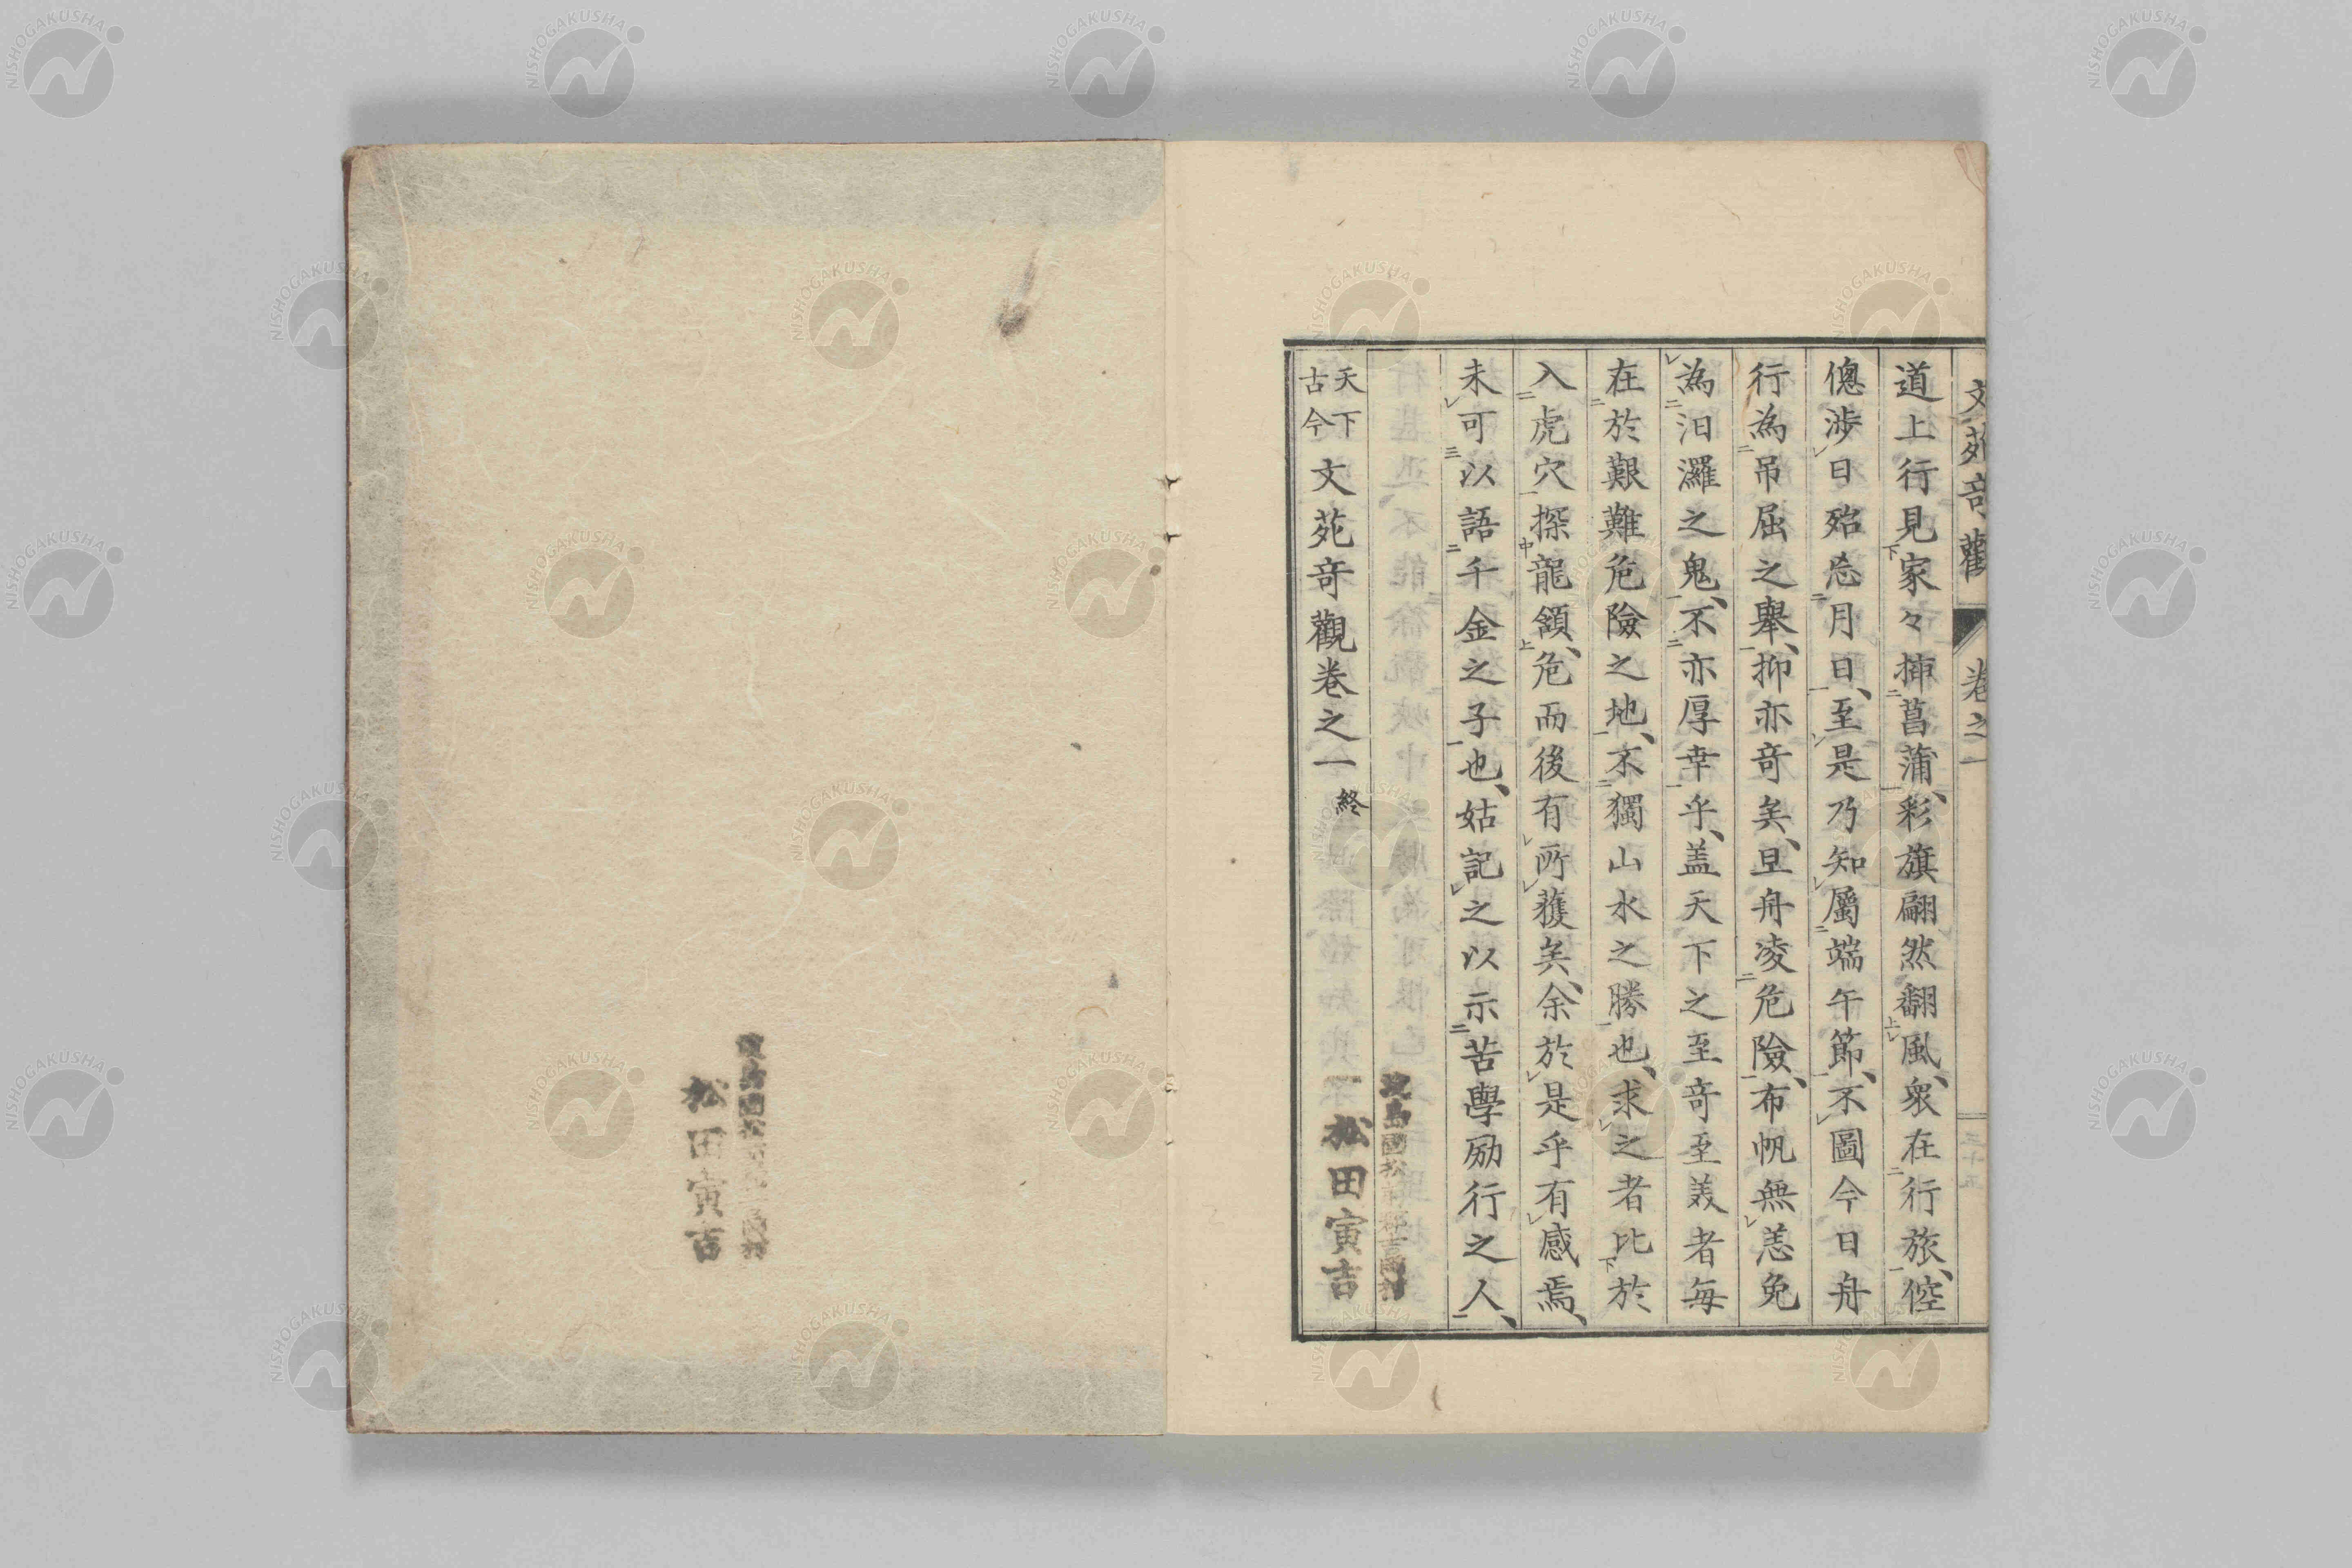 文苑竒觀 卷之一
道上行見家々挿菖蒲、彩旗翩然翻風、衆在行旅、倥
傯渉日殆忘月日、至是乃知屬端午節、不圖今日舟
行為吊屈之舉、抑亦竒矣、且舟凌危險、布帆無恙免
為汨羅之鬼、不亦厚幸乎、盖天下之至竒至美者每
在於艱難危險之地、不獨山水之勝也、求之者比於
入虎穴探龍頷、危而後有所獲矣、余於是乎有感焉、
未可以語千金之子也、姑記之以示苦學励行之人、
天下古今文苑竒觀卷之一 終
松田寅吉
松田寅吉
NISHOGAKUSHA